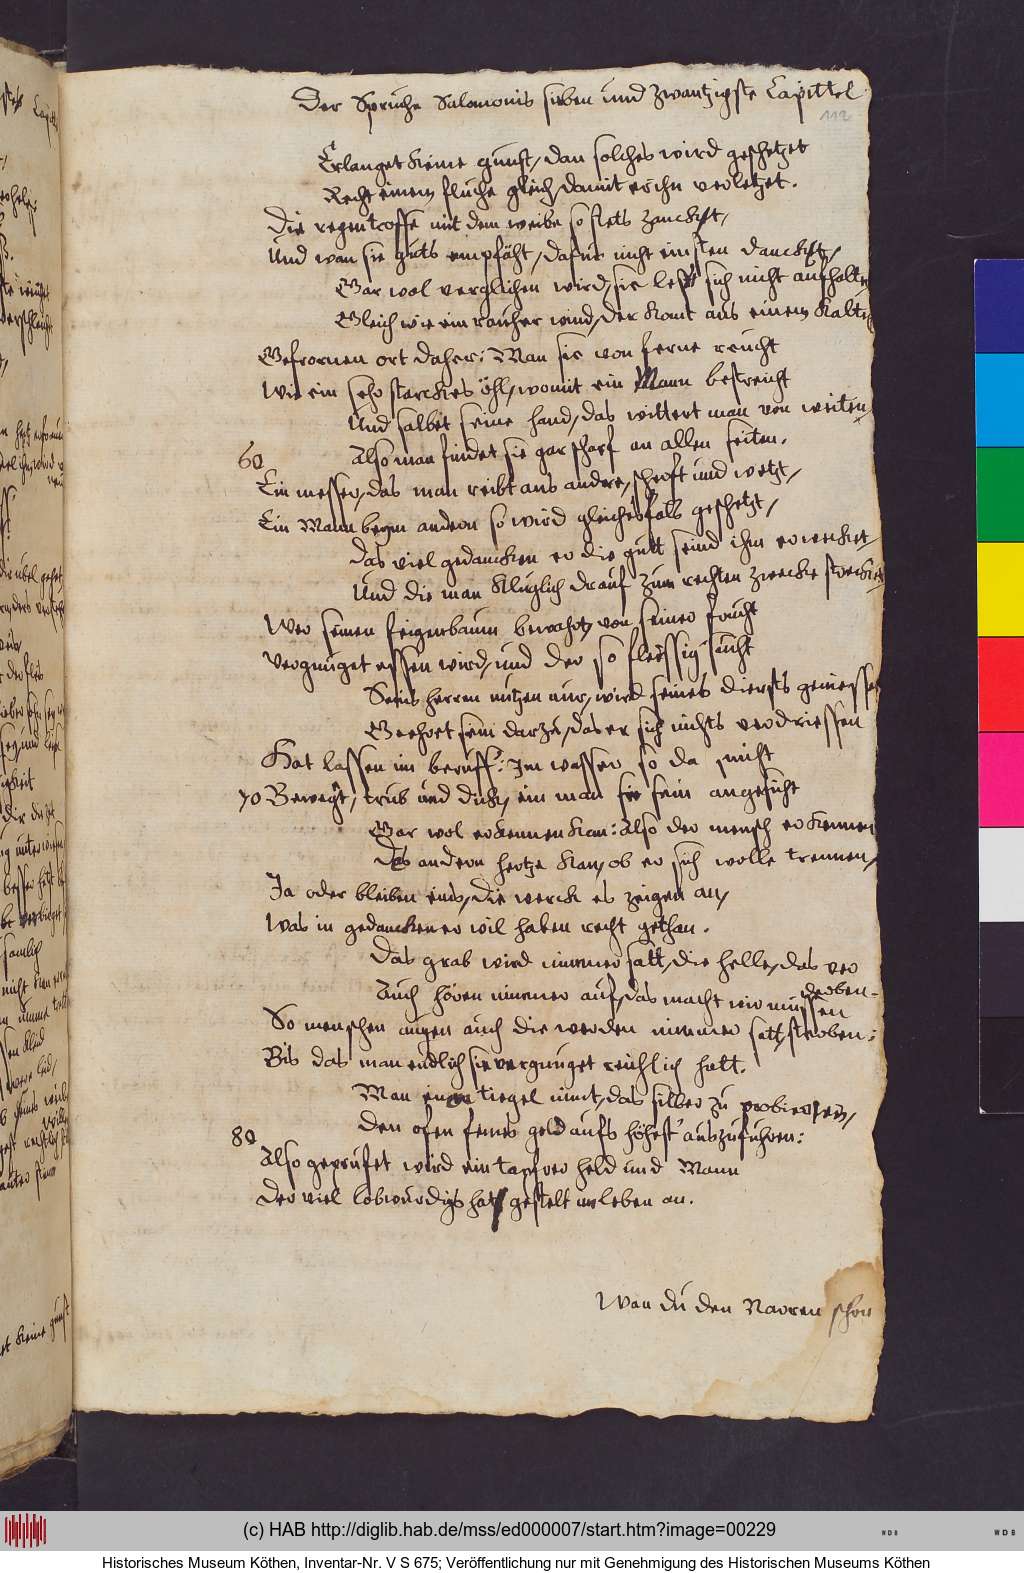 Der Spruche Salomonis sieben und zwantzigste Capittel
112
Erlanget keine gunst, dan solches wird geschetzet
Recht einem fluche gleich, damit er ihn verletzet.
Die regentroffe mit dem weibe so stets zanckt,
Und wan sie guts empfäht, dafur nicht einsten danckt,
Gar wol verglichen wird, sie lest sich nicht aufhalten
Gleich wie ein rauher wind, der komt aus einem kalten
Gefrornen ort daher: Man sie von ferne reucht
Wie ein sehr starckes öhl, womit ein Mann bestreicht
Und salbet seine hand, das wittert man von weiten,
Also man findet sie gar scharf an allen seiten.
60
Ein messer, das man reibt ans andre, scherft und wetzt,
Ein Mann beym andern so wird gleichesfals geschetzt,
Das viel gedancken er die gutt seind ihm erwecket,
Und die man kluglich drauf zum rechten zwecke strecket
Wer seinen feigenbaum bewahrt, von seiner frucht
Vergnuget essen wird, und der so fleissig sucht
Seins herren nutzen nur, wird seines diensts geniessen
Geehret sein darzu, das er sich nichts verdriessen
Hat lassen im beruff: Im wasser so da nicht
70 Bewegt, trub und dick, ein man sein angesicht
Gar wol erkennen kan: Also der mensch erkennen
Des andern hertze kan, ob er sich wolle trennen,
Ja oder bleiben eins, die werck es zeigen an,
Was in gedancken er wil haben recht gethan.
Das grab wird nimmer satt, die helle, das ver
derben
Auch hören nimmer auf, das macht wir mussen
So menschen augen auch die werden nimmer satt, sterben:
Bis das man endlich sie vergnuget reichlich hatt.
Man einen tiegel nimt, das silber zu probieren,
Den ofen feines gold aufs höhest' auszufuhren:
80
Also gepruefet wird ein tapfrer held und Mann
Der viel lobwurdigs hat gestelt im leben an.
Wan du den Narren schon
(c) HAB http://diglib.hab.de/mss/ed000007/start.htm?image=00229
WDB
WDB
Historisches Museum Köthen, Inventar-Nr. V S 675; Veröffentlichung nur mit Genehmigung des Historischen Museums Köthen